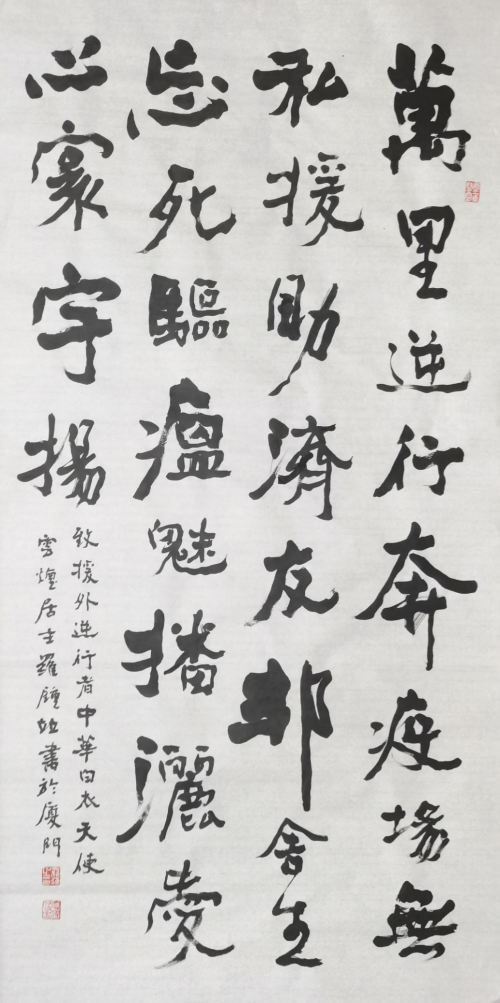 萬里逆行奔疫場無
私援助濟友邦舍生
忘死驅瘟魅播灑愛
心寰宇揚
致援外逆行者中華白衣天使
居士羅鍾書於廈門